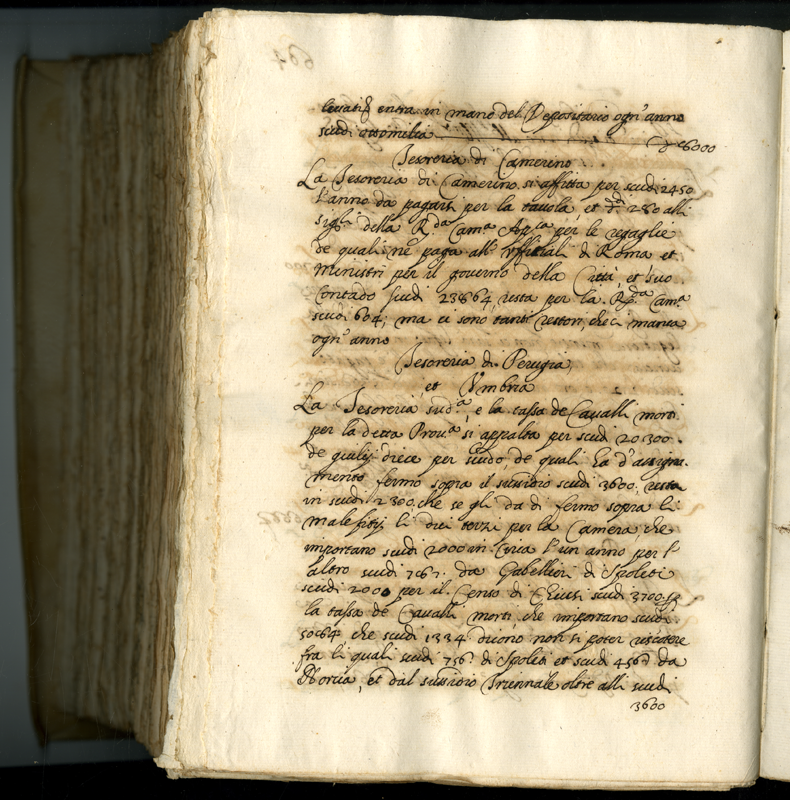 entra in mano del Depositario ogn' anno
scudi
6000
Tesoreria di Camerino
La Tesoreria di Camerino si affitta per scudi 2450
l'anno da pagarsi per la tavola, et 280 alli
sigri della R.da Cam.a Ap.la per le regaglie
de quali ne paga all' offitiali di Roma et
Ministri per il governo della Città, et suo
Contado scudi resta per la R.da Cam.a
scudi 604; ma ci sono tanti restori, che ci manca
ogn' anno
Tesoreria di Perugia,
et Umbria
La Tesoreria sud.a, e la tassa de Cavalli morti
per la detta Prov.a si appalta per scudi 20300.
de giulij diece per scudo, de quali ha d'assegna-
mento fermo sopra il sussidio scudi 3600; resta
in scudi 2300. che se gli da di fermo sopra li
malefitij li dui terzi per la Camera, che
importano scudi 2000 in circa l'un anno per l'
altro scudi 767. da Gabellieri di Spoleti
scudi 2000 per il Censo di Chiusi scudi 3700.
la tassa de Cavalli morti, che importano scudi
5064 che scudi 1334 dicono non si poter riscotere
fra li quali scudi 756. di Spoleti et scudi 456. da
Norcia, et dal sussidio Triennale oltre alli scudi
3600